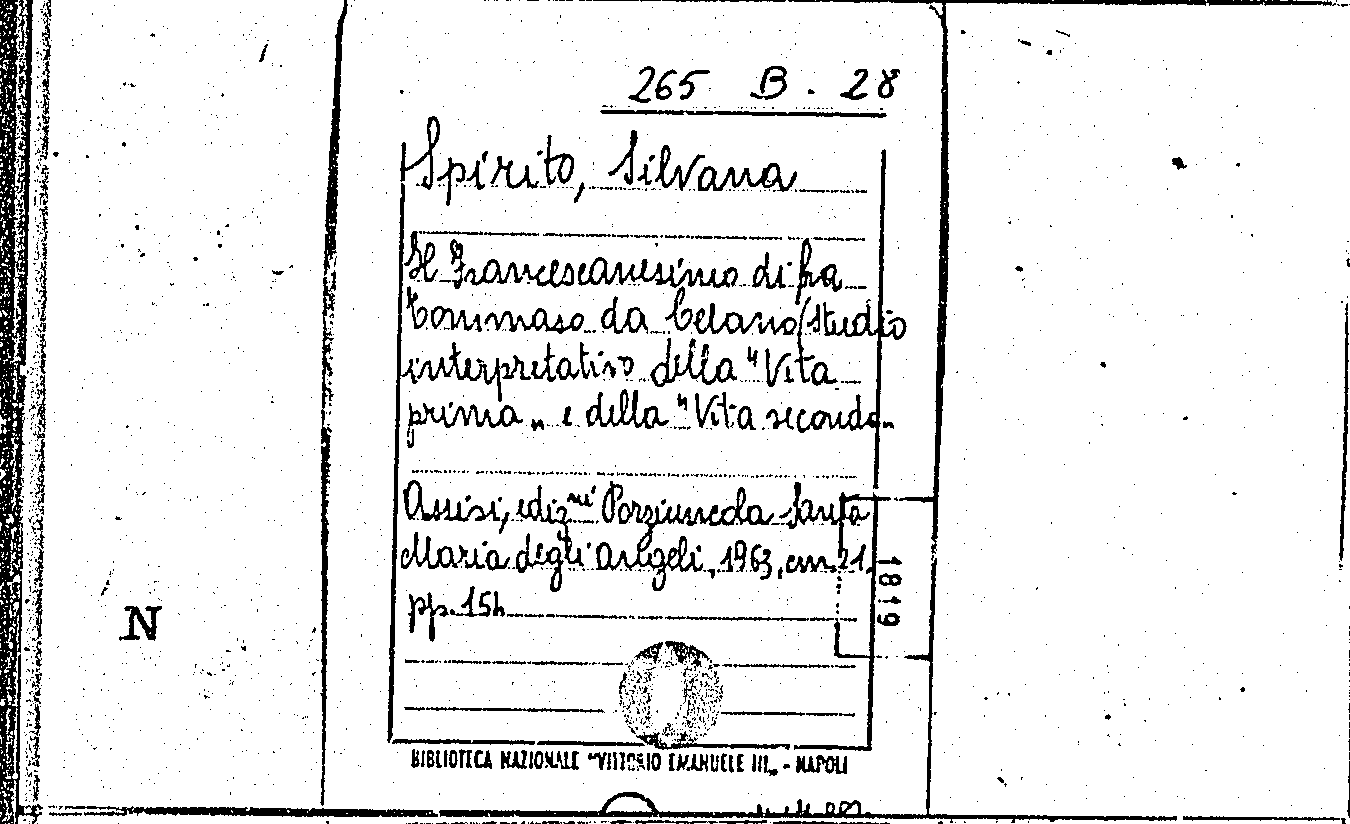 265 B. 28
Spirito, Silvana
Il Francescanesimo di fra
Tommaso da Celano (studio
interpretativo della "Vita
prima„ e della "Vita seconda„
Assisi, ediz.ni Porziuncola Santa
Maria degli Angeli, 1963, cm. 21.
pp. 154
1819
N
BIBLIOTECA NAZIONALE "VITTORIO EMANUELE III„ - NAPOLI